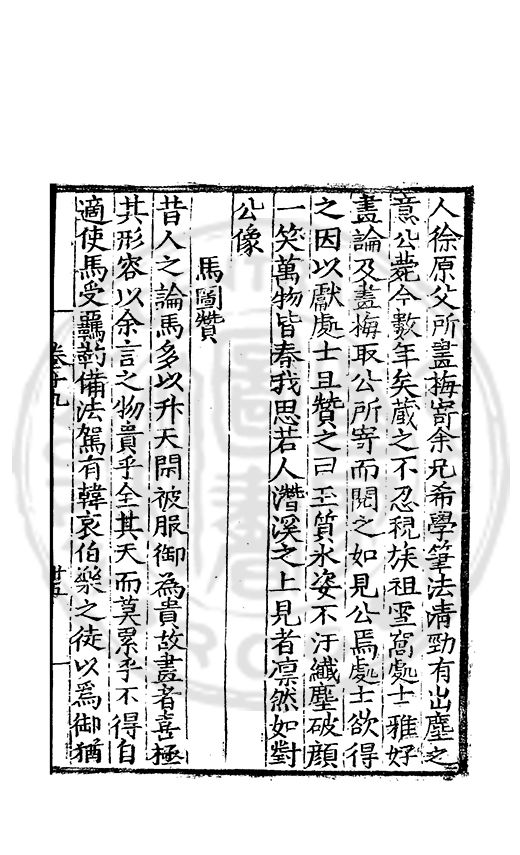 人徐原父所畫梅寄余兄希學筆法清勁有出塵之
意公薨今數年矣蔵之不忍視族祖雪窩處士雅好
畫論及畫梅取公所寄而閱之如見公焉處士欲得
之因以獻處士且贊之曰玉質氷姿不汙纖塵破顔
一笑萬物皆春我思若人潛溪之上見者凛然如對
公像
馬圖贊
昔人之論馬多以升天閑被服御為貴故畫者喜極
其形容以余言之物貴乎全其天而莫累乎不得自
適使馬受羈靮備法駕有韓哀伯樂之徒以爲御猶
卷十九
廿五